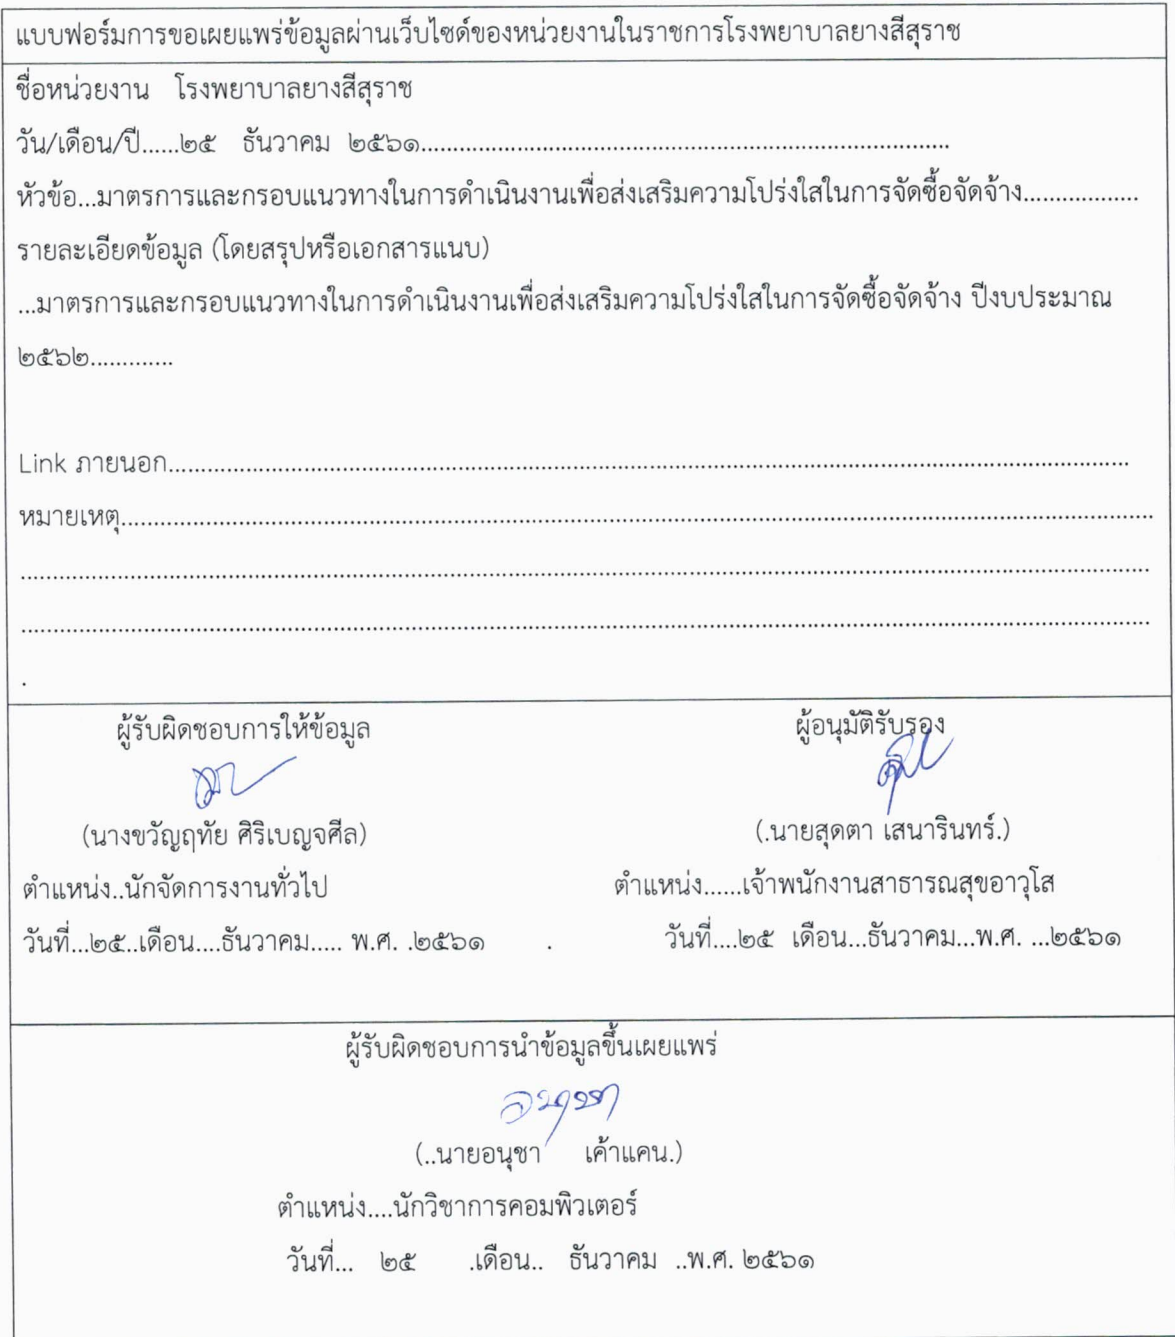 แบบฟอร์มการขอเผยแพร่ข้อมูลผ่านเว็บไซต์ของหน่วยงานในราชการโรงพยาบาลยางสีสุราช
ชื่อหน่วยงาน โรงพยาบาลยางสีสุราช
วัน/เดือน/ปี......๒๕ ธันวาคม ๒๕๖๑....................................................................................
หัวข้อ...มาตรการและกรอบแนวทางในการดำเนินงานเพื่อส่งเสริมความโปร่งใสในการจัดซื้อจัดจ้าง..................
รายละเอียดข้อมูล (โดยสรุปหรือเอกสารแนบ)
...มาตรการและกรอบแนวทางในการดำเนินงานเพื่อส่งเสริมความโปร่งใสในการจัดซื้อจัดจ้าง ปีงบประมาณ
๒๕๖๒.............
Link ภายนอก........................................................................................................................
หมายเหตุ................................................................................................................................
................................................................................................................................
................................................................................................................................
.
ผู้รับผิดชอบการให้ข้อมูล ผู้อนุมัติรับรอง
(นางขวัญฤทัย ศิริเบญจศีล) (.นายสุดตา เสนารินทร์.)
ตำแหน่ง..นักจัดการงานทั่วไป ตำแหน่ง......เจ้าพนักงานสาธารณสุขอาวุโส
วันที่...๒๕..เดือน....ธันวาคม..... พ.ศ. .๒๕๖๑ . วันที่....๒๕ เดือน...ธันวาคม...พ.ศ. ...๒๕๖๑
ผู้รับผิดชอบการนำข้อมูลขึ้นเผยแพร่
อนุชา
(..นายอนุชา เค้าแคน.)
ตำแหน่ง....นักวิชาการคอมพิวเตอร์
วันที่... ๒๕ .เดือน.. ธันวาคม ..พ.ศ. ๒๕๖๑